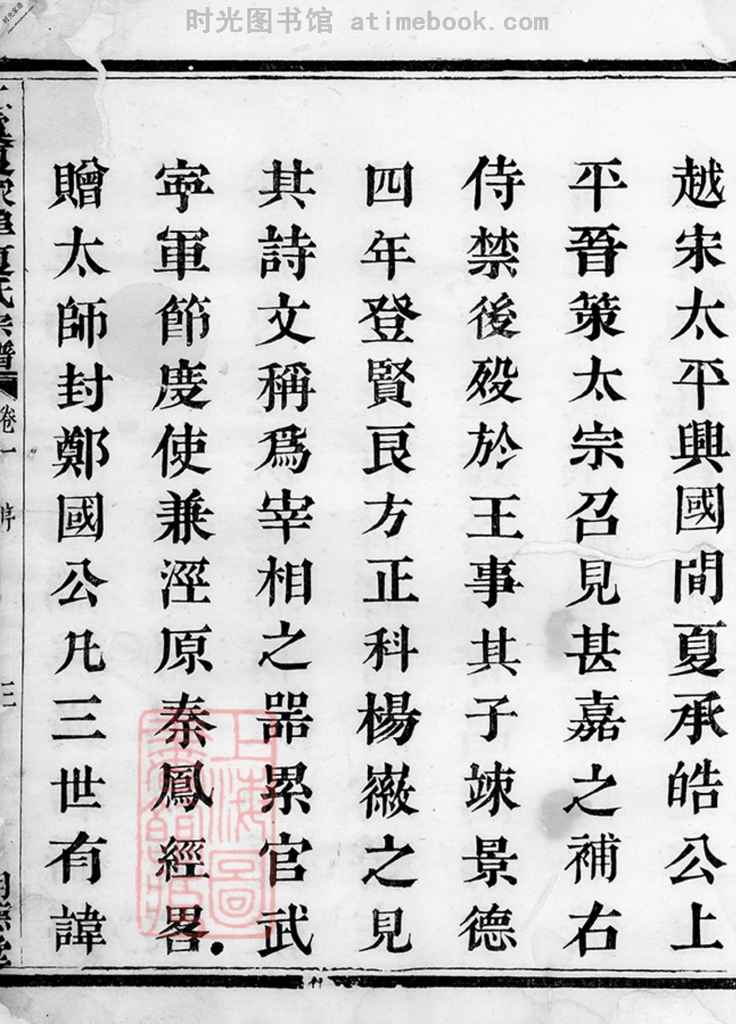 时光图书馆 atimebook.com
越宋太平興國間夏承皓公上
平晉策太宗召見甚嘉之補右
侍禁後歿於王事其子竦景德
四年登賢良方正科楊徽之見
其詩文稱爲宰相之器累官武
寜軍節度使兼涇原秦鳳經畧
贈太師封鄭國公凡三世有諱
夏氏宗譜
卷一
序
三
上海圖